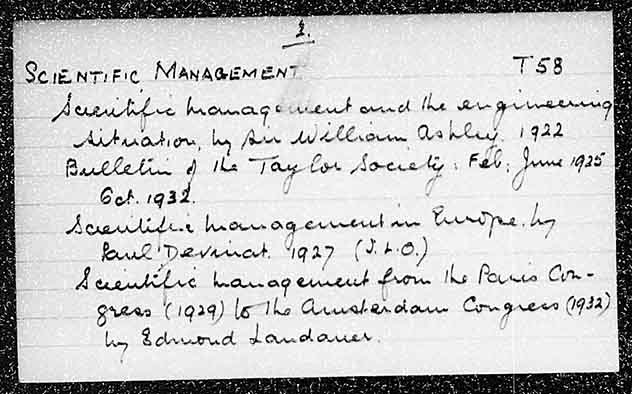 2.
SCIENTIFIC MANAGEMENT T58
Scientific management and the engineering
situation, by Sir William Ashley. 1922
Bulletin of the Taylor Society: Feb; June 1925
Oct. 1932.
Scientific management in Europe. by
Paul Devinat. 1927 (I.L.O.)
Scientific management from the Paris Con-
gress (1929) to the Amsterdam Congress (1932)
by Edmond Landauer.